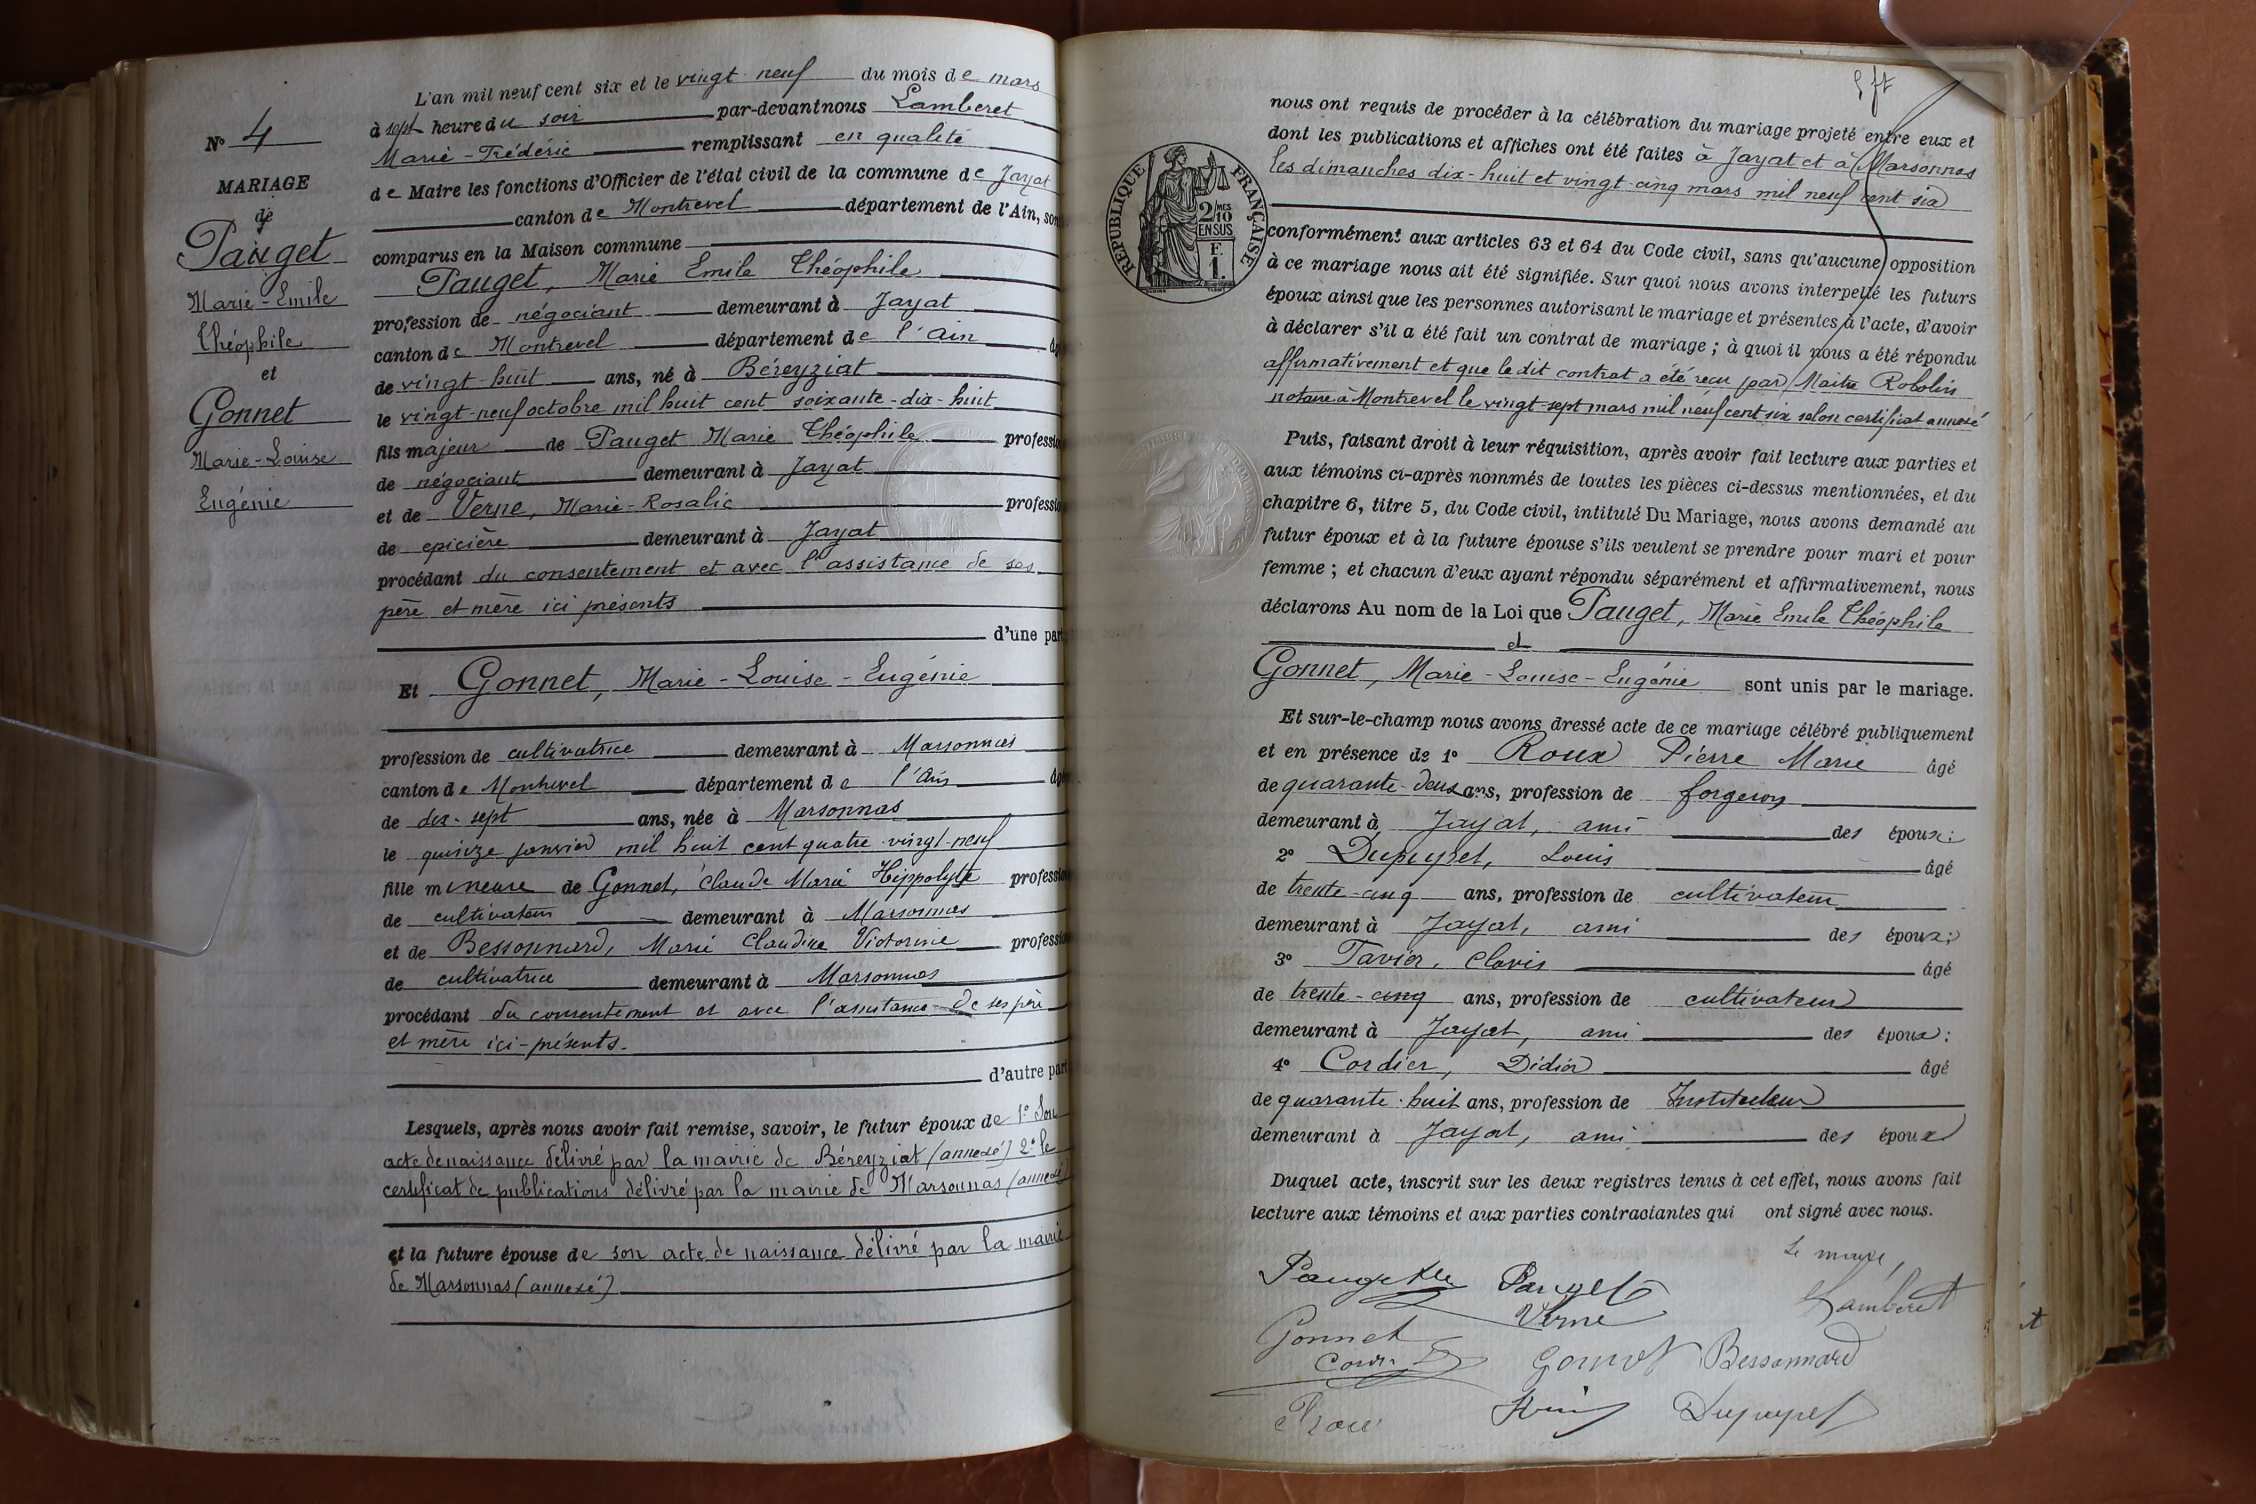 L'an mil neuf cent six et le vingt-neuf du mois de mars
à sept heure du soir par-devant nous Lamberet
Marie-Frédéric remplissant en qualité
de Maire les fonctions d'Officier de l'état civil de la commune de Jayat
canton de Montrevel département de l'Ain, sont
comparus en la Maison commune
Pauget, Marie Emile Théophile
profession de négociant demeurant à Jayat
canton de Montrevel département de l'Ain âgé
de vingt-huit ans, né à Béreyziat
le vingt-neuf octobre mil huit cent soixante-dix-huit
fils majeur de Pauget Marie Théophile profession
de négociant demeurant à Jayat
et de Verne, Marie-Rosalie profession
de epicière demeurant à Jayat
procédant du consentement et avec l'assistance de ses
père et mère ici présents
d'une part
Et Gonnet, Marie-Louise-Eugénie
profession de cultivatrice demeurant à Marsonnas
canton de Montrevel département de l'Ain âgée
de dix-sept ans, née à Marsonnas
le quinze janvier mil huit cent quatre-vingt-neuf
fille mineure de Gonnet, Claude Marie Hippolyte profession
de cultivateur demeurant à Marsonnas
et de Bessonnard, Marie Claudine Victorine profession
de cultivatrice demeurant à Marsonnas
procédant du consentement et avec l'assistance de ses père
et mère ici-présents.
d'autre part
Lesquels, après nous avoir fait remise, savoir, le futur époux de 1° Son
acte de naissance délivré par la mairie de Béreyziat (annexé) 2° le
certificat de publications délivré par la mairie de Marsonnas (annexé)
et la future épouse de son acte de naissance délivré par la mairie
de Marsonnas (annexé)
N° 4
MARIAGE
de
Pauget
Marie-Emile
Théophile
et
Gonnet
Marie-Louise
Eugénie
nous ont requis de procéder à la célébration du mariage projeté entre eux et
dont les publications et affiches ont été faites à Jayat et à Marsonnas
les dimanches dix-huit et vingt-cinq mars mil neuf cent six
RÉPUBLIQUE FRANÇAISE
2/10
MES
EN SUS
F.
1.
conformément aux articles 63 et 64 du Code civil, sans qu'aucune opposition
à ce mariage nous ait été signifiée. Sur quoi nous avons interpellé les futurs
époux ainsi que les personnes autorisant le mariage et présentes à l'acte, d'avoir
à déclarer s'il a été fait un contrat de mariage ; à quoi il nous a été répondu
affirmativement et que le dit contrat a été reçu par Maitre Robolin
notaire à Montrevel le vingt-sept mars mil neuf cent six selon certificat annexé
Puis, faisant droit à leur réquisition, après avoir fait lecture aux parties et
aux témoins ci-après nommés de toutes les pièces ci-dessus mentionnées, et du
chapitre 6, titre 5, du Code civil, intitulé Du Mariage, nous avons demandé au
futur époux et à la future épouse s'ils veulent se prendre pour mari et pour
femme ; et chacun d'eux ayant répondu séparément et affirmativement, nous
déclarons Au nom de la Loi que Pauget, Marie Emile Théophile
et
Gonnet, Marie-Louise-Eugénie sont unis par le mariage.
Et sur-le-champ nous avons dressé acte de ce mariage célébré publiquement
et en présence de 1° Roux Pierre Marie âgé
de quarante-deux ans, profession de forgeron
demeurant à Jayat, ami des époux;
2° Dupuypet, Louis âgé
de trente-cinq ans, profession de cultivateur
demeurant à Jayat, ami des époux;
3° Tavier, Clovis âgé
de trente-cinq ans, profession de cultivateur
demeurant à Jayat, ami des époux;
4° Cordier, Didier âgé
de quarante-huit ans, profession de Instituteur
demeurant à Jayat, ami des époux
Duquel acte, inscrit sur les deux registres tenus à cet effet, nous avons fait
lecture aux témoins et aux parties contractantes qui ont signé avec nous.
Le maire,
Pauget Pauget Lamberet
Verne
Gonnet
Gonnet Bessonnard
Roux Dupuypet